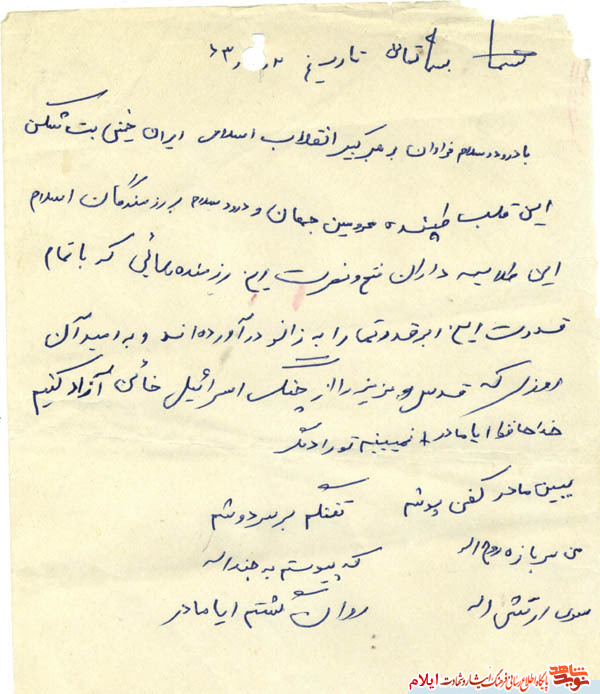 بسمه تعالی تاریخ ۶۳
با درود و سلام فراوان بر رهبر کبیر انقلاب اسلامی ایران خمینی بت شکن
این قلب طپنده محرومین جهان و درود و سلام بر رزمندگان اسلام
این طلایه داران فتح و نصرت این رزمنده هائی که با تمام
قدرت این ابرقدرتها را به زانو درآورده اند و به امید آن
روزی که قدس عزیز را از چنگ اسرائیل خائن آزاد کنیم
خداحافظ ایا مادر نمیبینم تو را دیگر
ببین مادر کفن پوشم تفنگم بر سر دوشم
من سربازه روح اله که پیوستم به جنداله
سوی ارتش اله روان گشتم ایا مادر
نوید شاهد
پایگاه اطلاع رسانی فرهنگ ایثار و شهادت ایلام